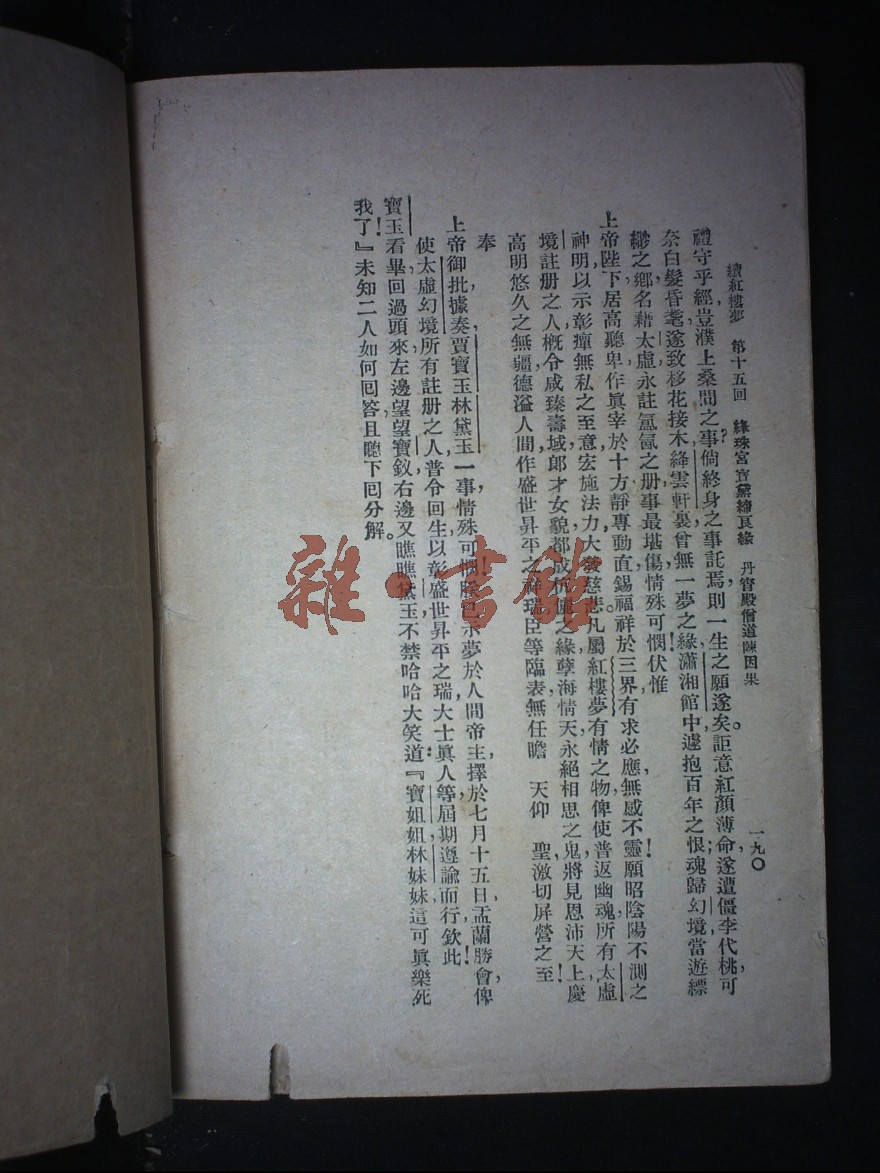 續紅樓夢 第十五回 絳珠宮寶黛締良緣 丹霄殿僧道陳因果 一九〇
禮守乎經,豈濮上桑間之事?倘終身之事託焉,則一生之願遂矣。詎意紅顏薄命,遂遭僵李代桃,可
奈白髮昏耄,遂致移花接木,絳雲軒裏,曾無一夢之緣,瀟湘館中,遽抱百年之恨;魂歸幻境,當遊縹
緲之鄉,名藉太虛,永註氤氳之册,事最堪傷,情殊可憫!伏惟
上帝陛下,居高聽卑,作眞宰於十方,靜專動直,錫福祥於三界,有求必應,無感不靈!願昭陰陽不測之
神明,以示彰癉無私之至意,宏施法力,大發慈悲。凡屬紅樓夢有情之物,俾使普返幽魂,所有太虛
境註册之人,槪令咸臻壽域,郎才女貌,都成伉儷之緣,孽海情天,永絕相思之鬼,將見恩沛天上,慶
高明悠久之無疆,德溢人間,作盛世昇平之祥瑞,臣等臨表,無任瞻 天仰 聖,激切屏營之至!
奉
上帝御批,據奏賈寶玉林黛玉一事,情殊可憫!朕已示夢於人間帝主,擇於七月十五日,盂蘭勝會,俾
使太虛幻境所有註册之人,普令回生,以彰盛世昇平之瑞,大士眞人等,屆期遵諭而行,欽此!
寶玉看畢,回過頭來,左邊望望寶釵,右邊又瞧瞧黛玉,不禁哈哈大笑道:『寶姐姐林妹妹,這可眞樂死
我了!』未知二人如何囘答,且聽下囘分解。
雜·書館